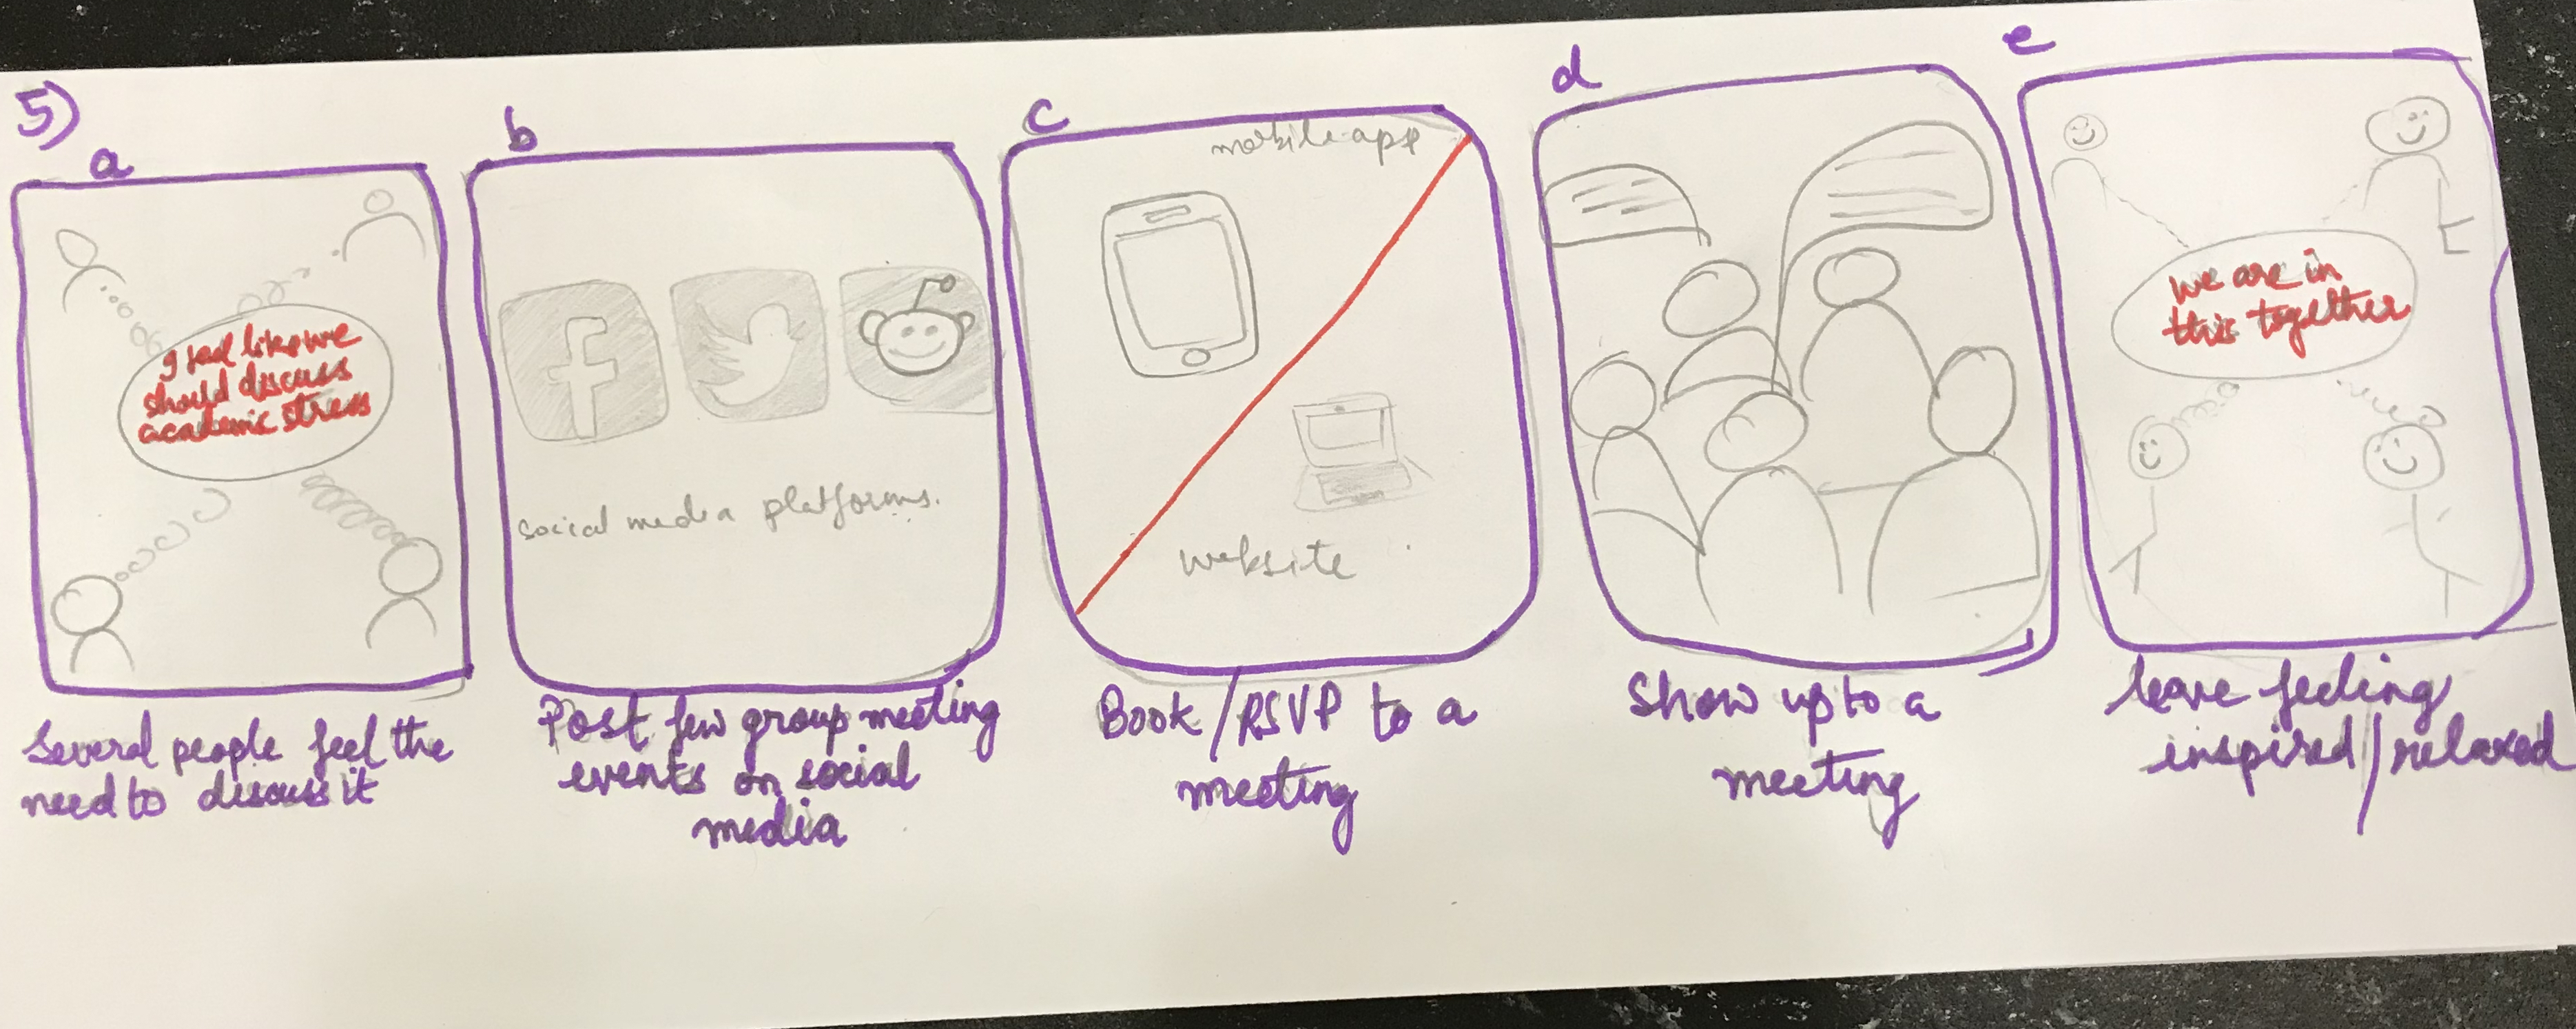 5)
a
I feel like we
should discuss
academic stress
Several people feel the
need to discuss it
b
f
social media platforms.
Post few group meeting
events on social
media
c
mobile app
website
Book/RSVP to a
meeting
d
Show up to a
meeting
e
we are in
this together
leave feeling
inspired/relaxed